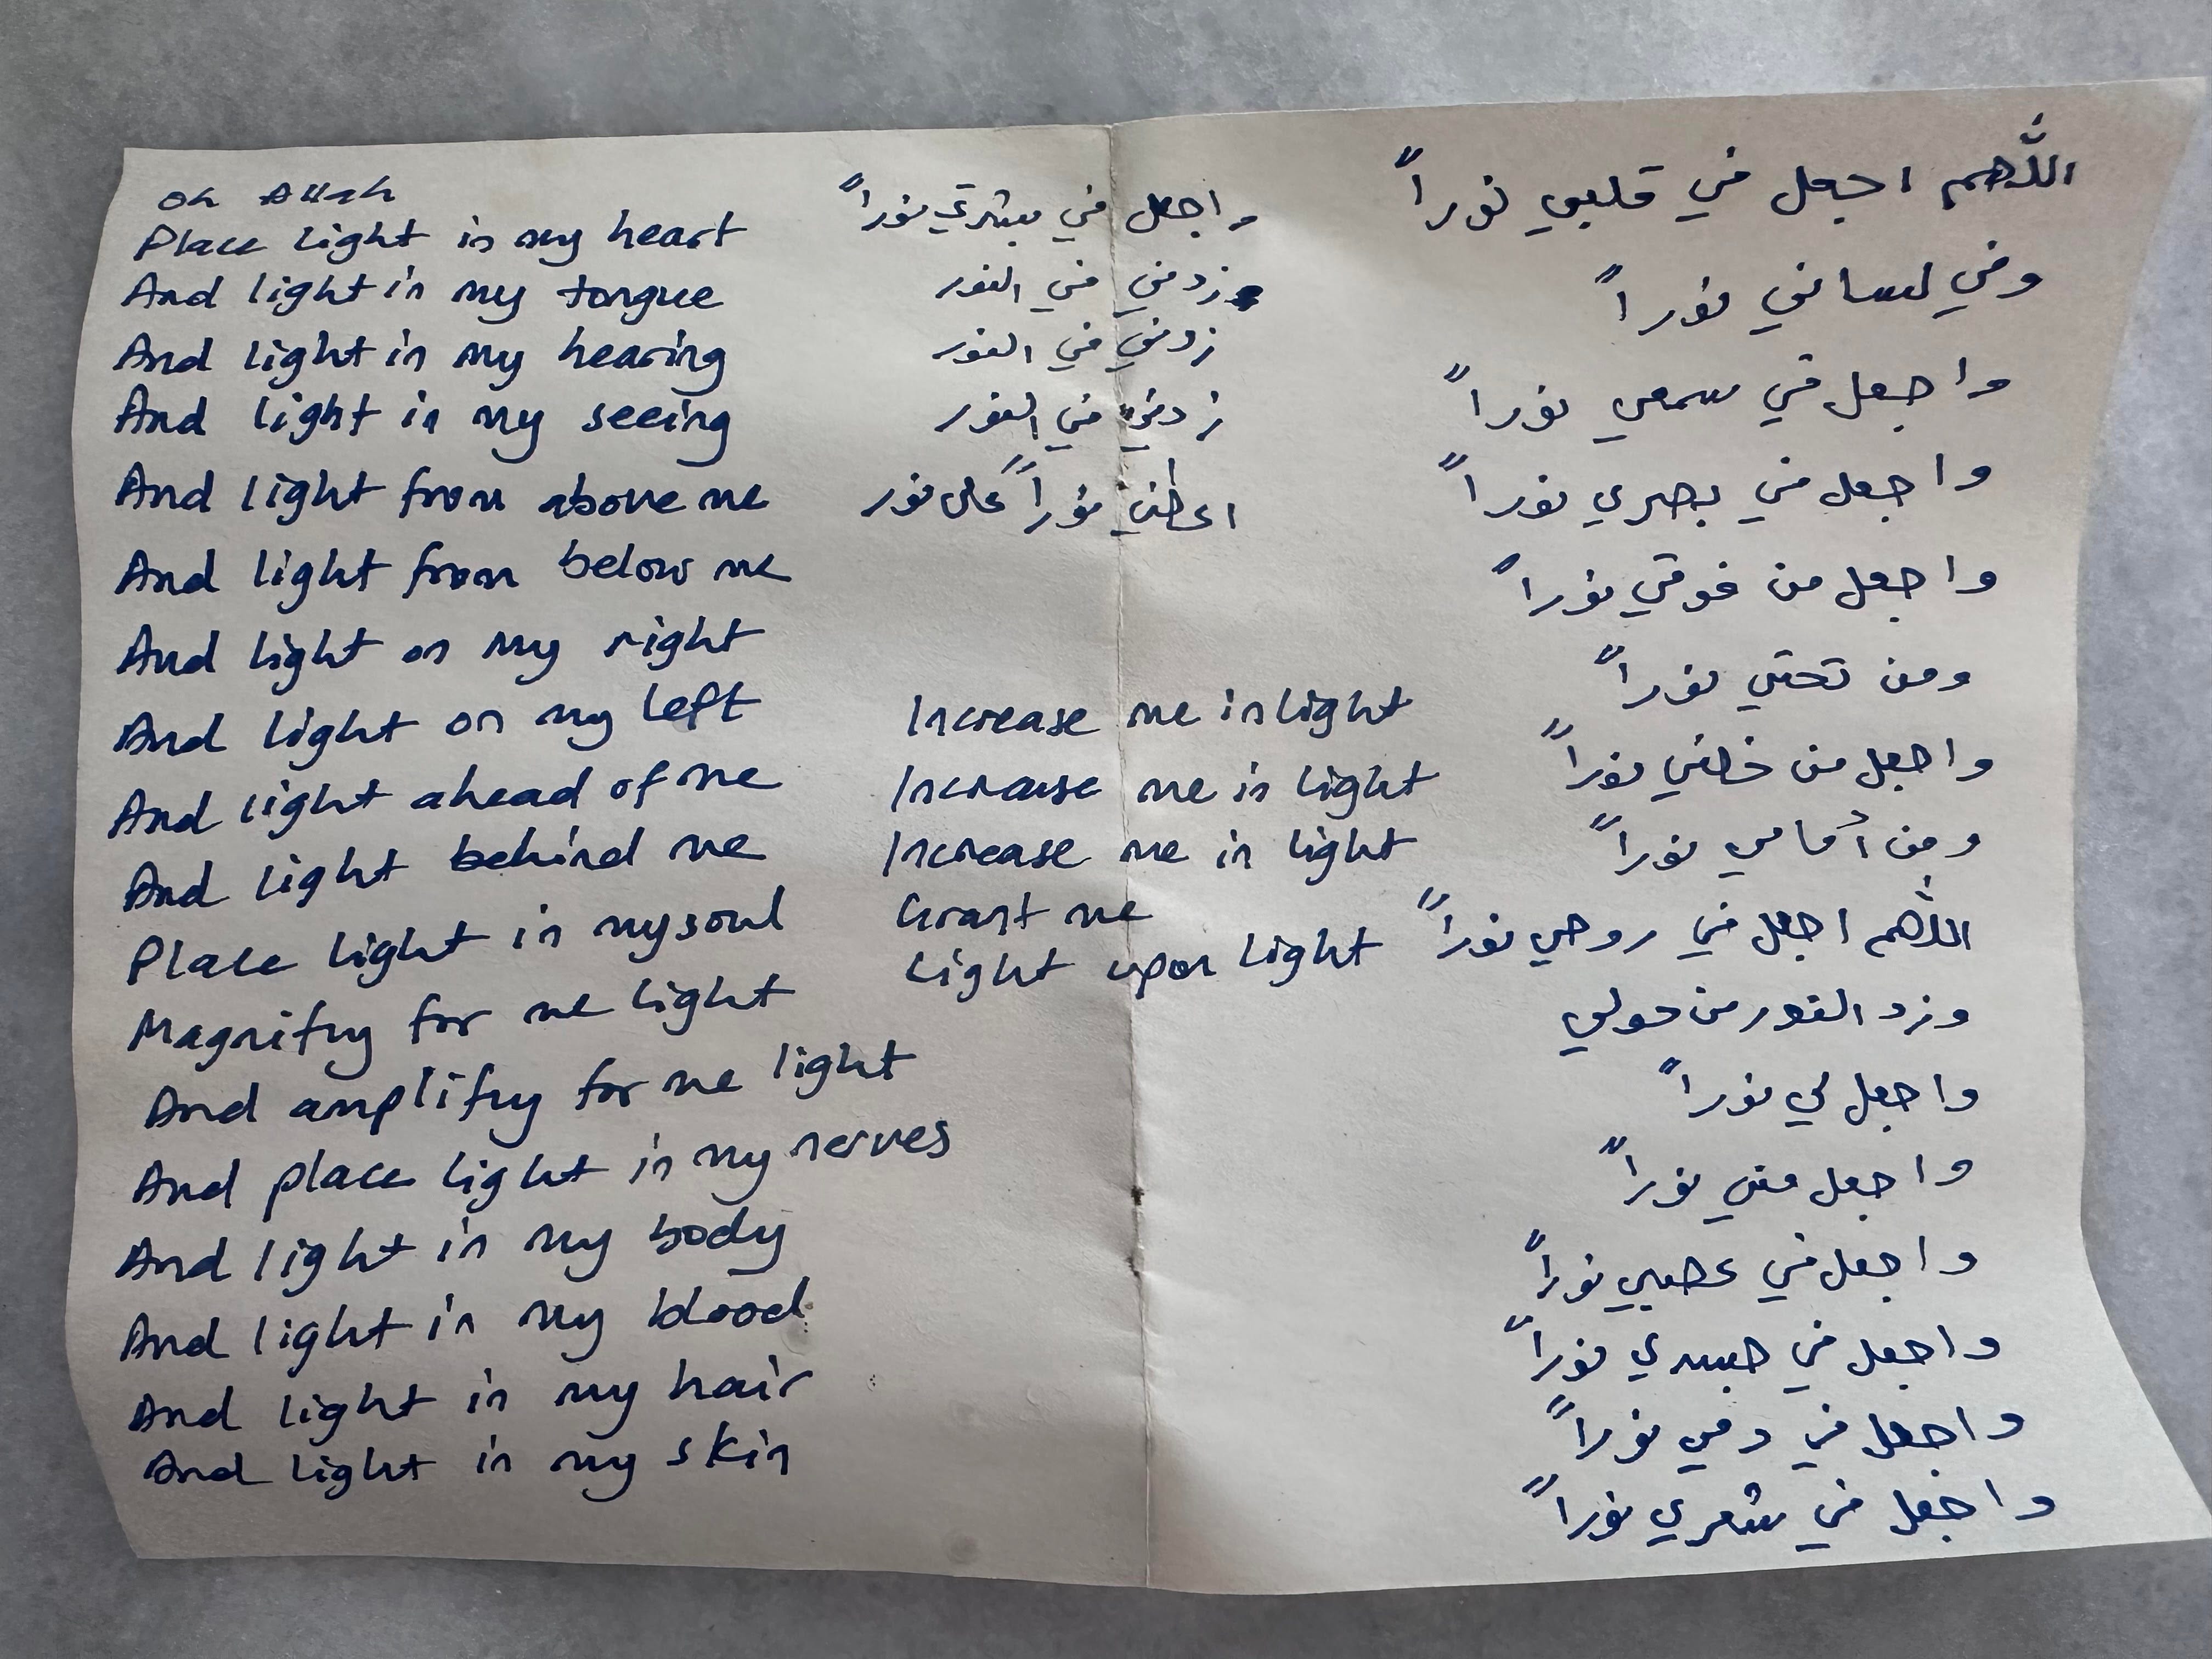 Oh Allah
Place light in my heart
And light in my tongue
And light in my hearing
And light in my seeing
And light from above me
And light from below me
And light on my right
And light on my left
And light ahead of me
And light behind me
Place light in my soul
Magnifry for me light
And amplifry for me light
And place light in my nerves
And light in my body
And light in my blood
And light in my hair
And light in my skin
Increase me in light
Increase me in light
Increase me in light
Grant me
Light upon light
اللّهم اجعل في قلبي نوراً
وفي لساني نوراً
واجعل في سمعي نوراً
واجعل في بصري نوراً
واجعل من فوقي نوراً
ومن تحتي نوراً
واجعل من خلفي نوراً
ومن أمامي نوراً
اللّهم اجعل في روحي نوراً
وزد النور من حولي
واجعل لي نوراً
واجعل مني نوراً
واجعل في عصبي نوراً
واجعل في جسدي نوراً
واجعل في دمي نوراً
واجعل في شعري نوراً
واجعل في بشرتي نوراً
وزدني في النور
زدني في النور
زدني في النور
اعطني نوراً على نور